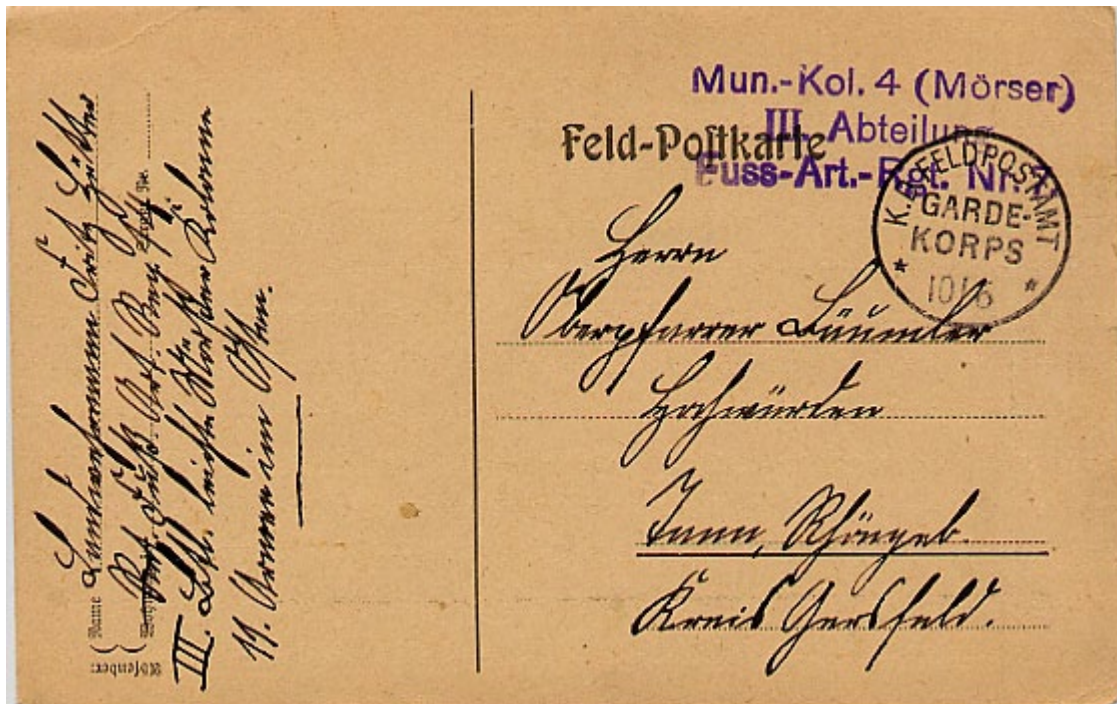 Mun.-Kol. 4 (Mörser)
III. Abteilung
Fuss-Art.-Rgt. Nr.
Feld-Postkarte
K. D. FELDPOSTAMT
GARDE-
KORPS
10/6
Herrn
Oberpfarrer Bäumler
Hochwürden
Tann, Rhöngeb.
Kreis Gersfeld.
Absender:
Name Landwehrmann Fritz
Fuß. Art. Reg.
III. Btl. leichte Mörser Kolonne
11. Armee im Osten.